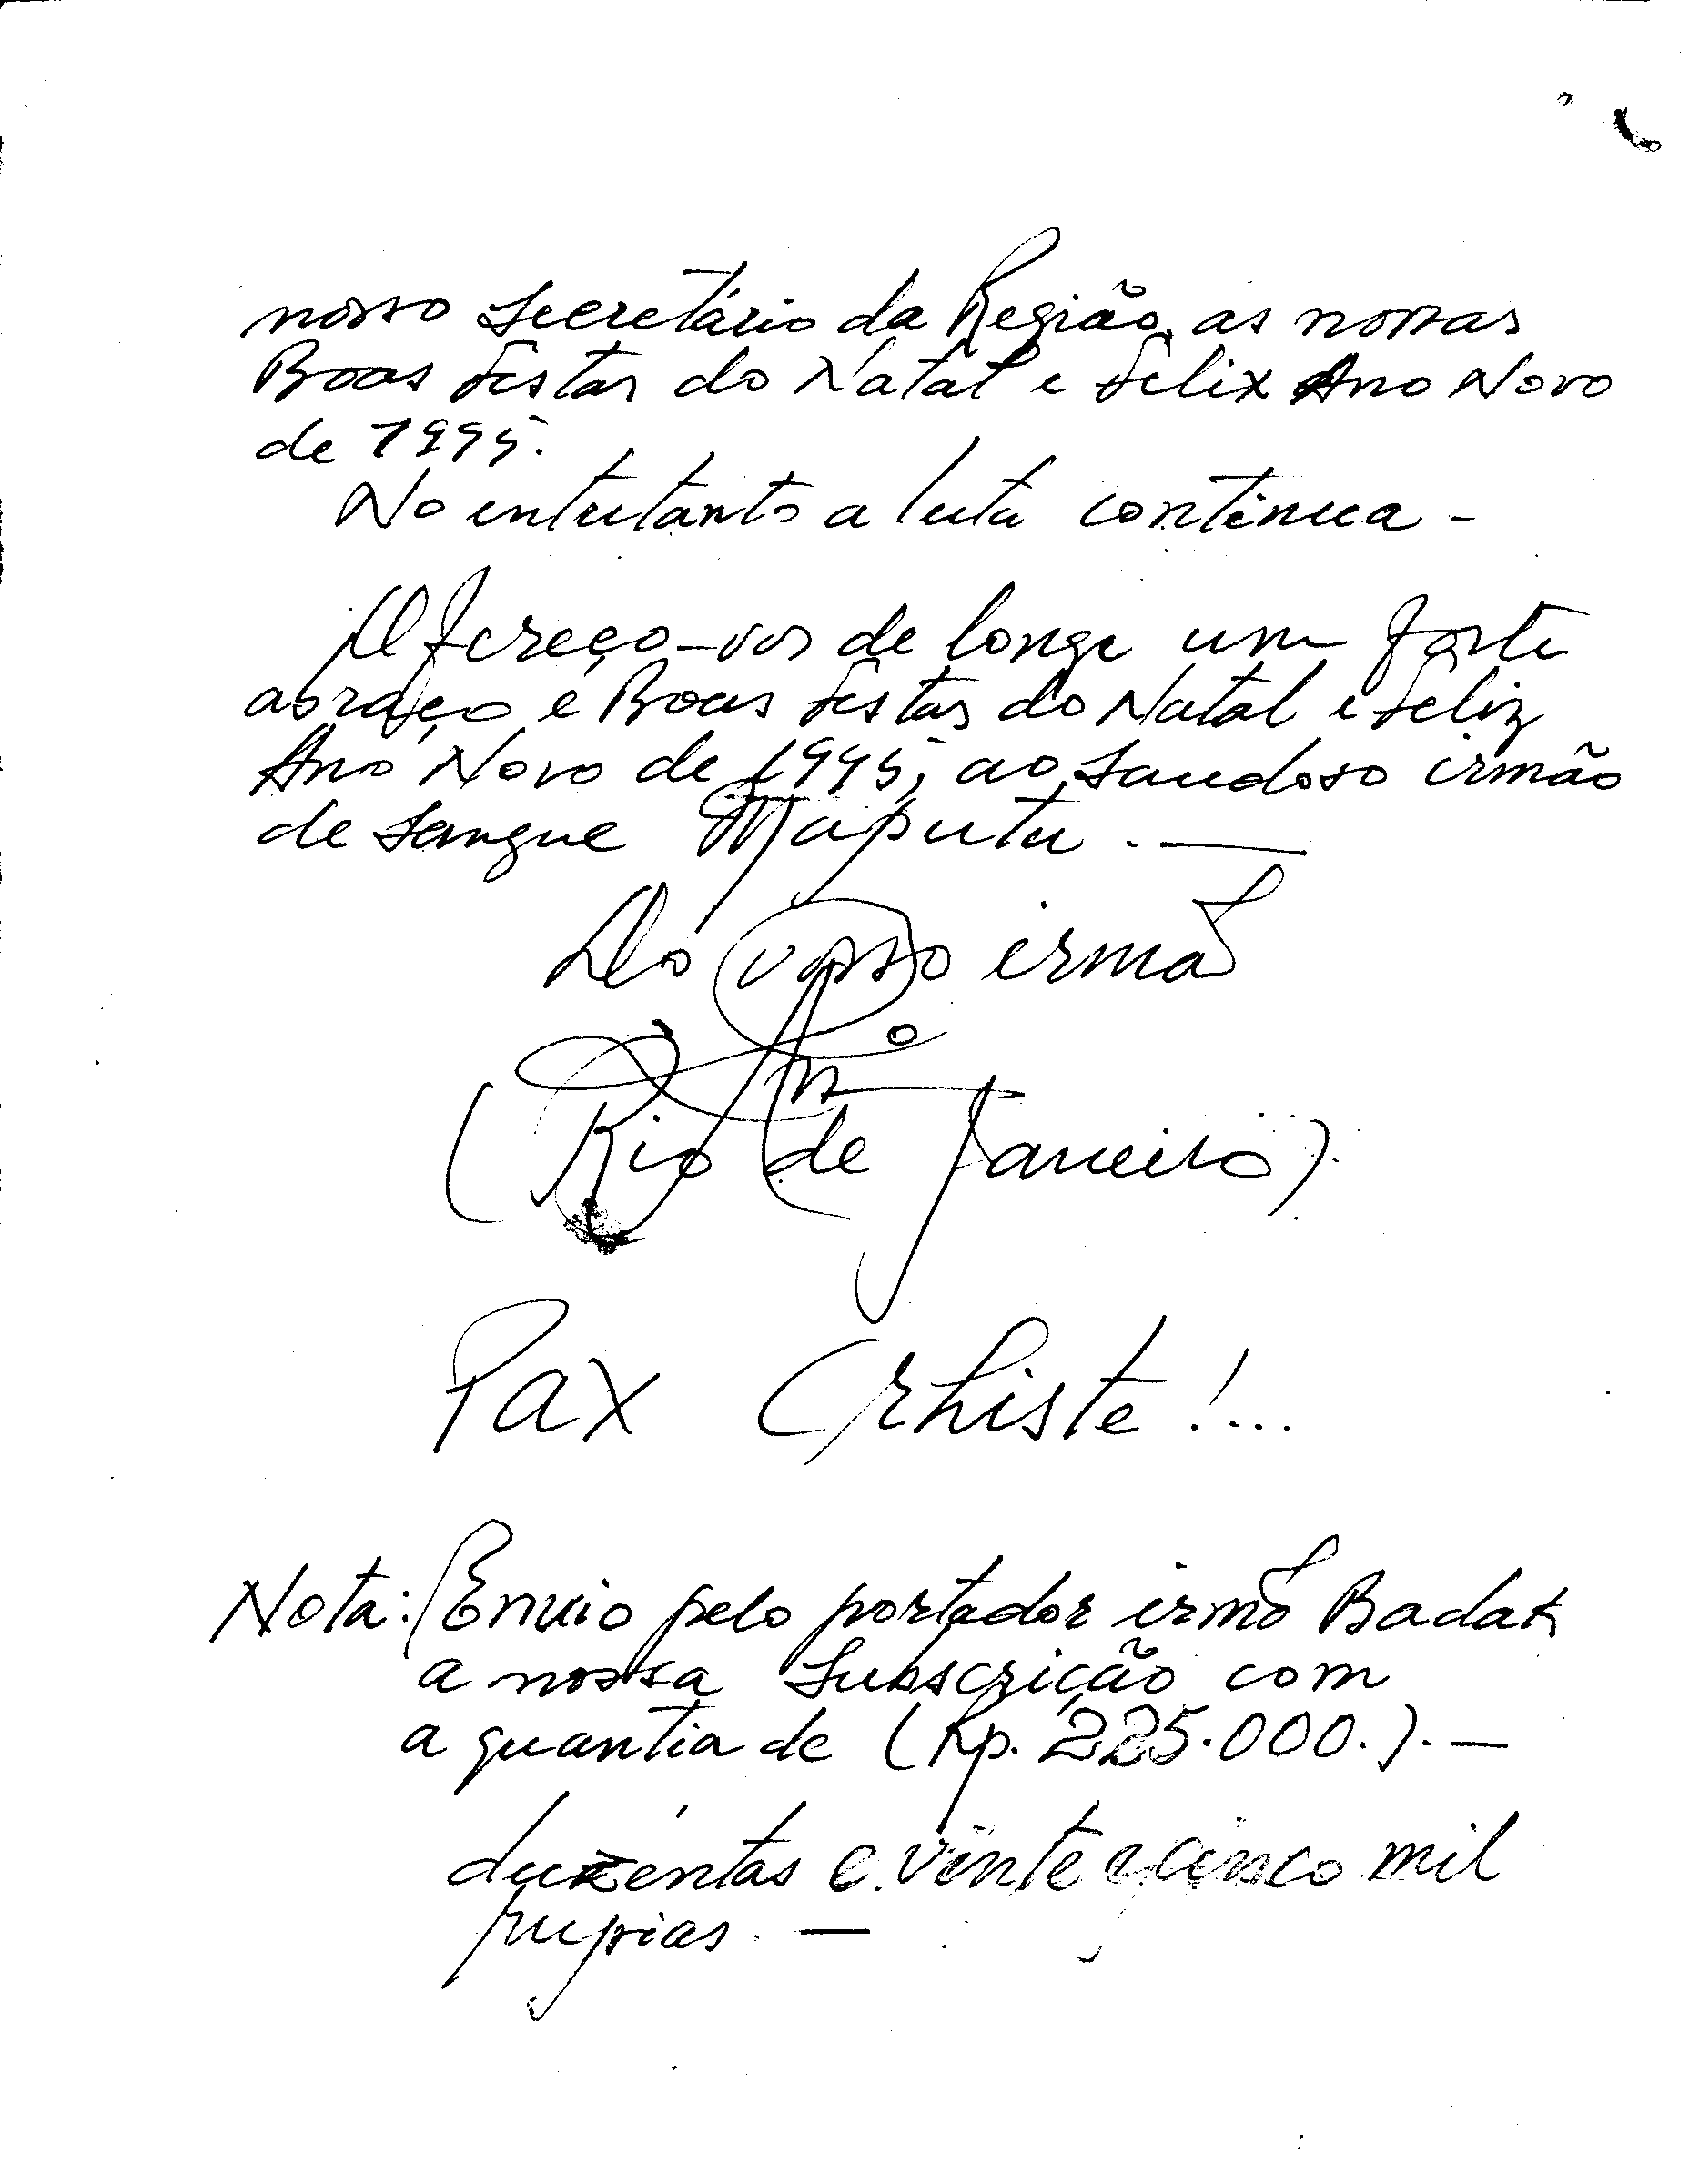 nosso Secretário da Região, as nossas
Boas festas do Natal e felix Ano Novo
de 1995.
No entretanto a luta continua -
Ofereço-vos de longe um forte
abraço e Boas festas do Natal e feliz
Ano Novo de 1995, ao saudoso irmão
de sangue Maputu. —
Do vosso irmão
(Rio de Janeiro)
Pax Crhiste!...
Nota: Envio pelo portador irmõ Badak
a nossa Subscrição com
a quantia de (Rp. 225.000.). —
duzentas e vinte e cinco mil
rupias. —